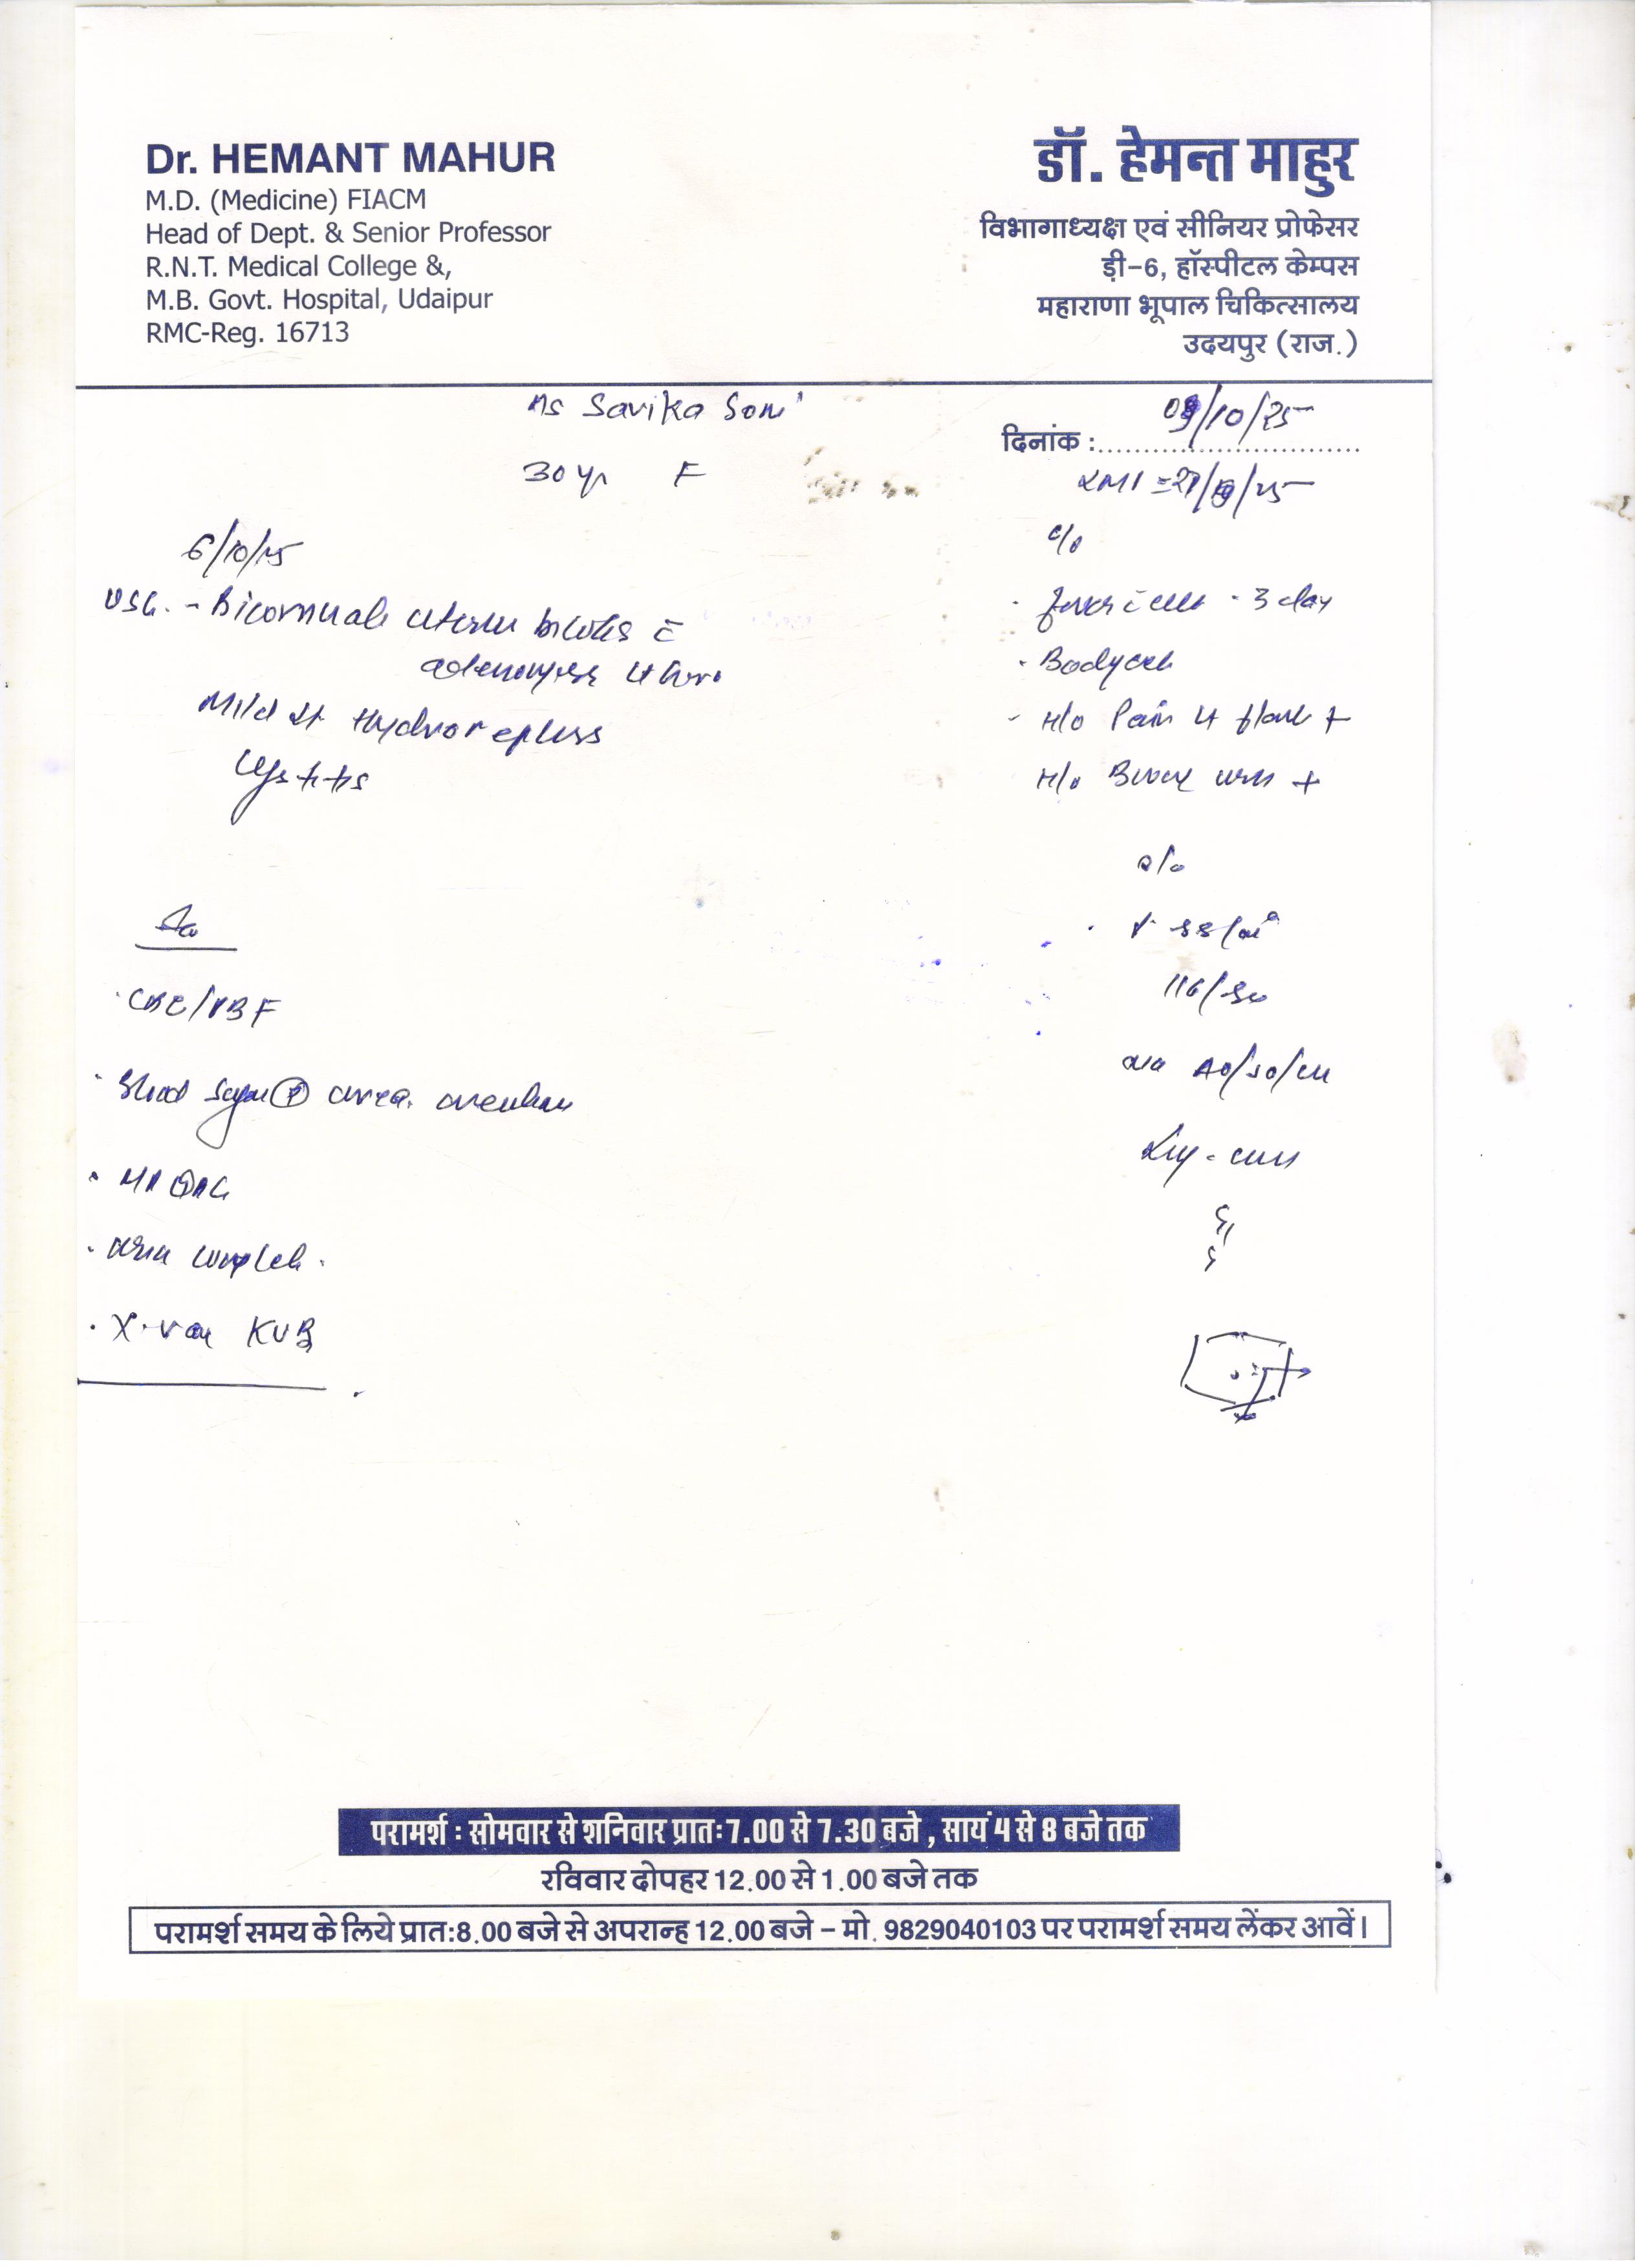 Dr. HEMANT MAHUR
M.D. (Medicine) FIACM
Head of Dept. & Senior Professor
R.N.T. Medical College &,
M.B. Govt. Hospital, Udaipur
RMC-Reg. 16713
डॉ. हेमन्त माहुर
विभागाध्यक्ष एवं सीनियर प्रोफेसर
ड़ी-6, हॉस्पीटल केम्पस
महाराणा भूपाल चिकित्सालय
उदयपुर (राज.)
Ms Savika Soni
30 yr F
दिनांक : 09/10/25
6/10/25
USG. - Bicornuate uterus
Mild Lt Hydronephrosis
Cystitis
CBC/PBF
Blood Sugar (R) urea. creatinine
Urine complete
X-ray KUB
c/o
fever c chill - 3 day
Bodyache
H/o Pain Lt flank +
H/o Burning urine +
o/e
P 88/min
116/80
परामर्श : सोमवार से शनिवार प्रातः 7.00 से 7.30 बजे , सायं 4 से 8 बजे तक
रविवार दोपहर 12.00 से 1.00 बजे तक
परामर्श समय के लिये प्रात:8.00 बजे से अपरान्ह 12.00 बजे – मो. 9829040103 पर परामर्श समय लेंकर आवें।